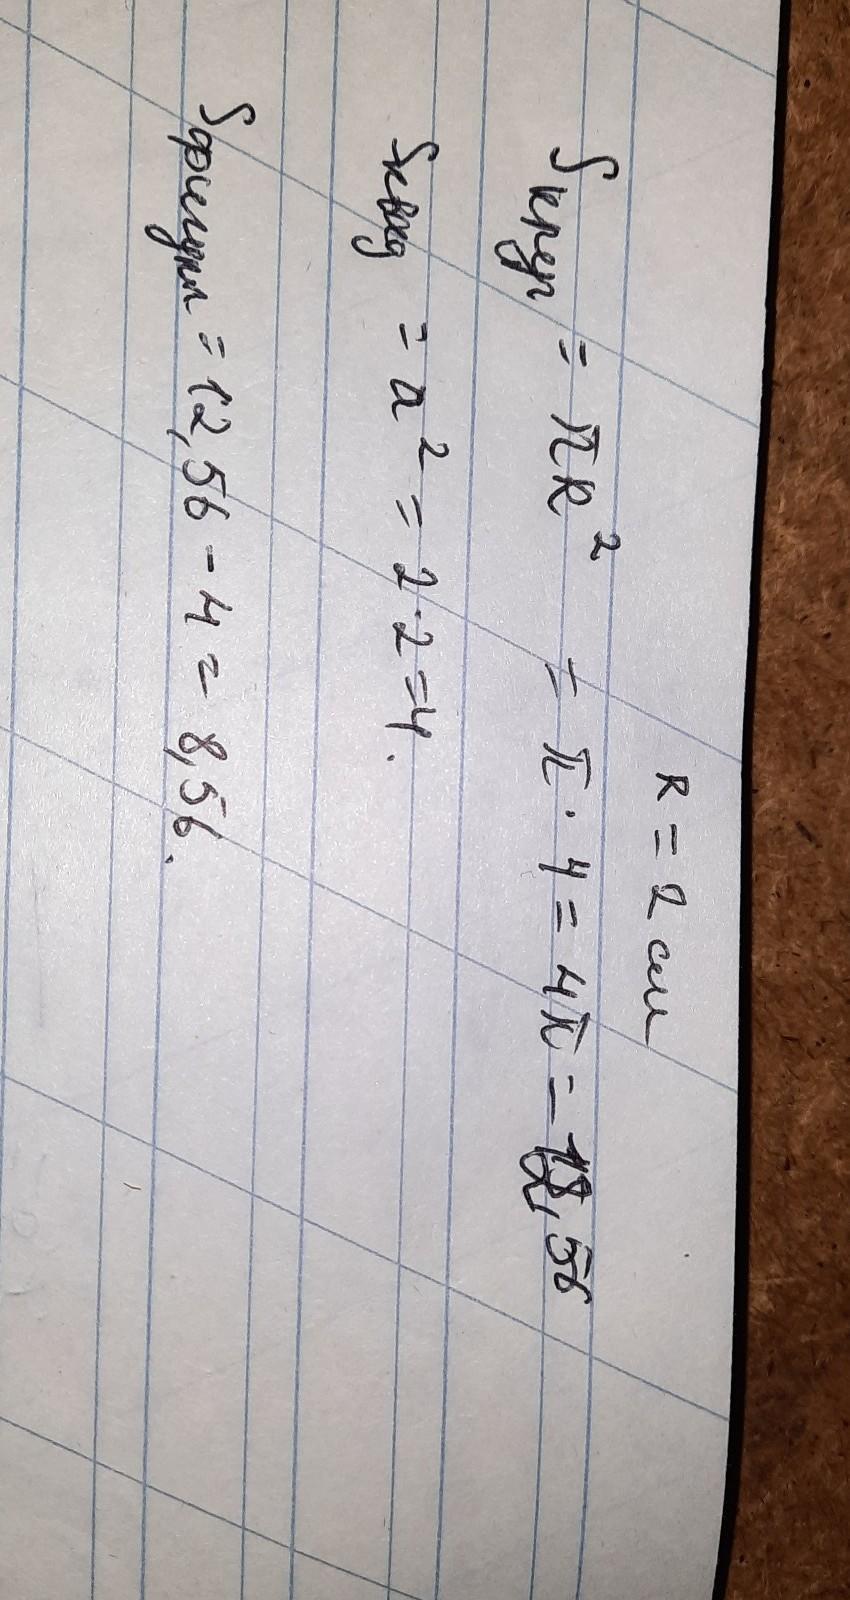 R = 2 см
Sкруг = πR² = π · 4 = 4π = 12,56
Sквад = a² = 2·2=4.
Sфигуры = 12,56 - 4 = 8,56.